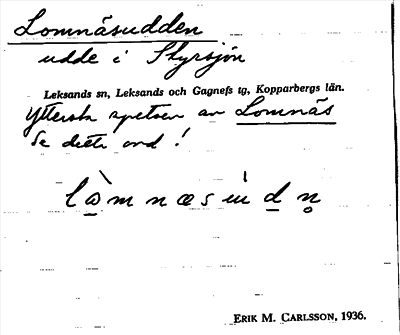 Lomnäsudden
udde i Styrsjön
Leksands sn, Leksands och Gagnefs tg, Kopparbergs län.
Yttersta spetsen av Lomnäs
Se detta ord!
lòmnæsúdn̥
ERIK M. CARLSSON, 1936.